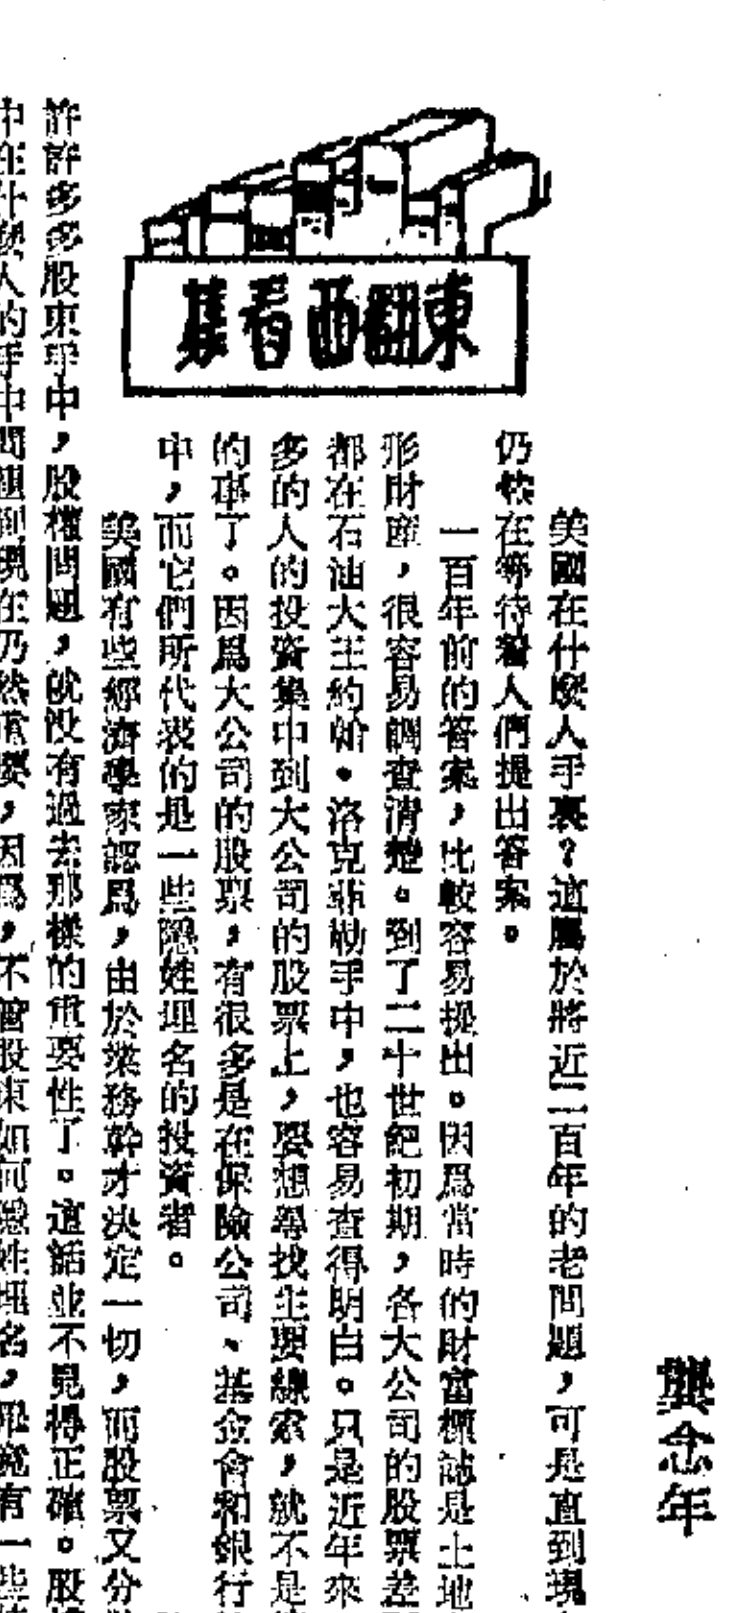 龔念年
東翻西看集
美國在什麼人手裏？這屬於將近二百年的老問題，可是直到現
仍然在等待着人們提出答案。
一百年前的答案，比較容易提出。因爲當時的財富標誌是土地
形財產，很容易調查清楚。到了二十世紀初期，各大公司的股票差
都在石油大王約翰•洛克菲勒手中，也容易查得明白。只是近年來
多的人的投資集中到大公司的股票上，要想尋找主要線索，就不是
的事了。因爲大公司的股票，有很多是在保險公司、基金會和銀行
中，而它們所代表的是一些隱姓埋名的投資者。
美國有些經濟學家認爲，由於業務幹才決定一切，而股票又分
許許多多股東手中，股權問題，就没有過去那樣的重要性了。這話並不見得正確。股
中在什麼人的手中問題到現在仍然重要，因爲，不管股東如何隱姓埋名，畢竟有一些